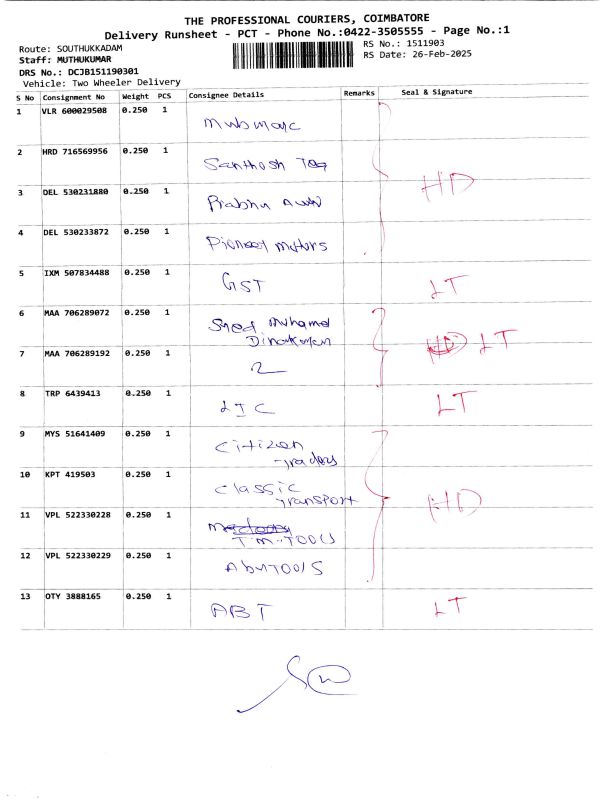 THE PROFESSIONAL COURIERS, COIMBATORE
Delivery Runsheet - PCT - Phone No.:0422-3505555 - Page No.:1
Route: SOUTHUKKADAM
RS No.: 1511903
Staff: MUTHUKUMAR
RS Date: 26-Feb-2025
DRS No.: DCJB151190301
Vehicle: Two Wheeler Delivery
S No Consignment No Weight PCS Consignee Details Remarks Seal & Signature
1 VLR 600029508 0.250 1
2 HRD 716569956 0.250 1 Santhosh
HD
3 DEL 530231880 0.250 1 Prabhu
4 DEL 530233872 0.250 1 Pioneer motors
5 IXM 507834488 0.250 1 GST LT
6 MAA 706289072 0.250 1 Syed Muhamed
LT
7 MAA 706289192 0.250 1 2
8 TRP 6439413 0.250 1 LIC LT
9 MYS 51641409 0.250 1 citizen
traders
10 KPT 419503 0.250 1 classic
transport
HD
11 VPL 522330228 0.250 1
T.M-TOOLS
12 VPL 522330229 0.250 1 AbuTOOLS
13 OTY 3888165 0.250 1 ABT LT